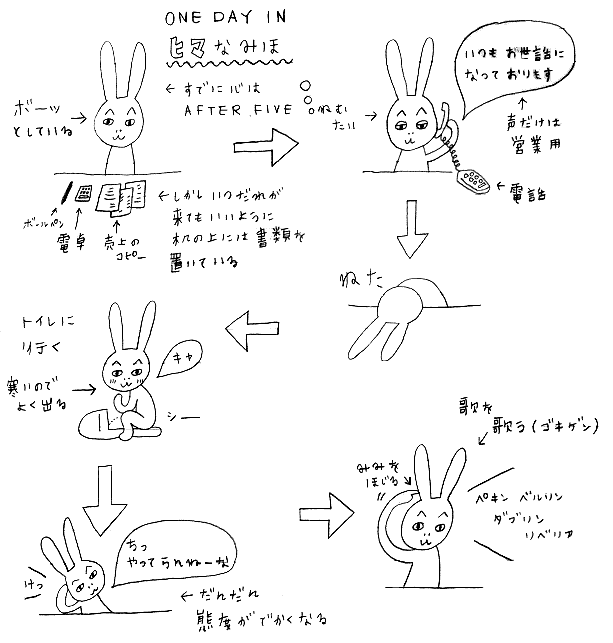 ONE DAY IN
ヒマなみほ
ボーッ
としている
すでに心は
AFTER FIVE
ねむ
たい
いつも お世話に
なって おります
声だけは
営業用
電話
ボールペン
電卓
売上の
コピー
しかし いつ だれが
来ても いいように
机の上には 書類を
置いている
ねた
トイレに
行く
キャ
寒いので
よく出る
シー
ちっ
やってらんねーな
けっ
だんだん
態度がでかくなる
歌を
歌う(ゴキゲン)
みみを
ほじる
ペキン ベルリン
ダブリン
リベリア